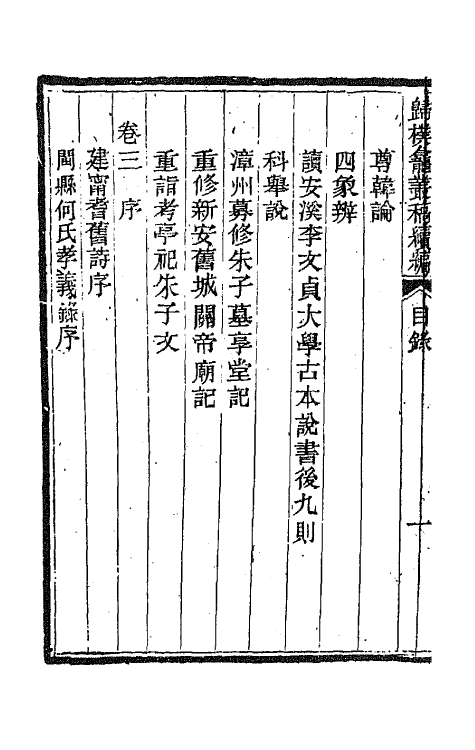 歸樸龕叢稿續編 目錄 一
尊韓論
四象辨
讀安溪李文貞大學古本說書後九則
科舉說
漳州募修朱子墓享堂記
重修新安舊城關帝廟記
重詣考亭祀朱子文
卷三 序
建甯耆舊詩序
閩縣何氏孝義錄序